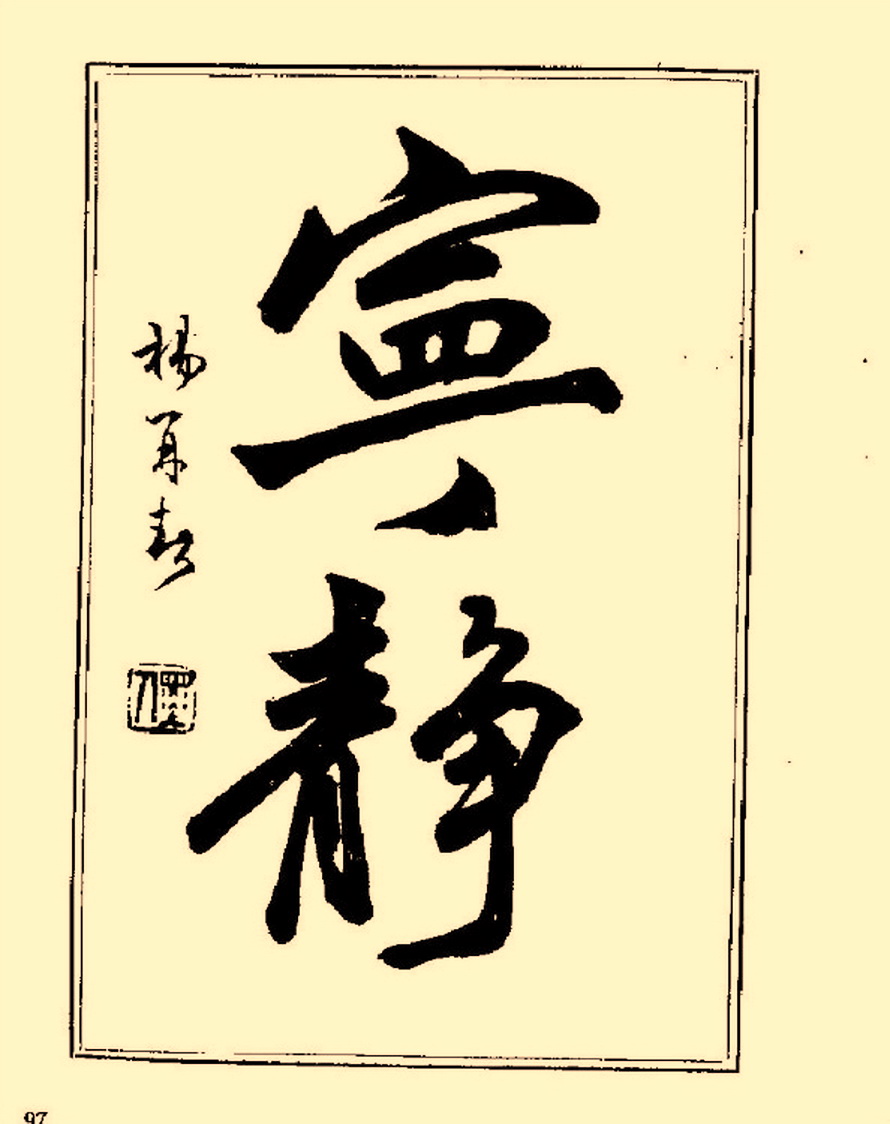 寧静
楊再春
97